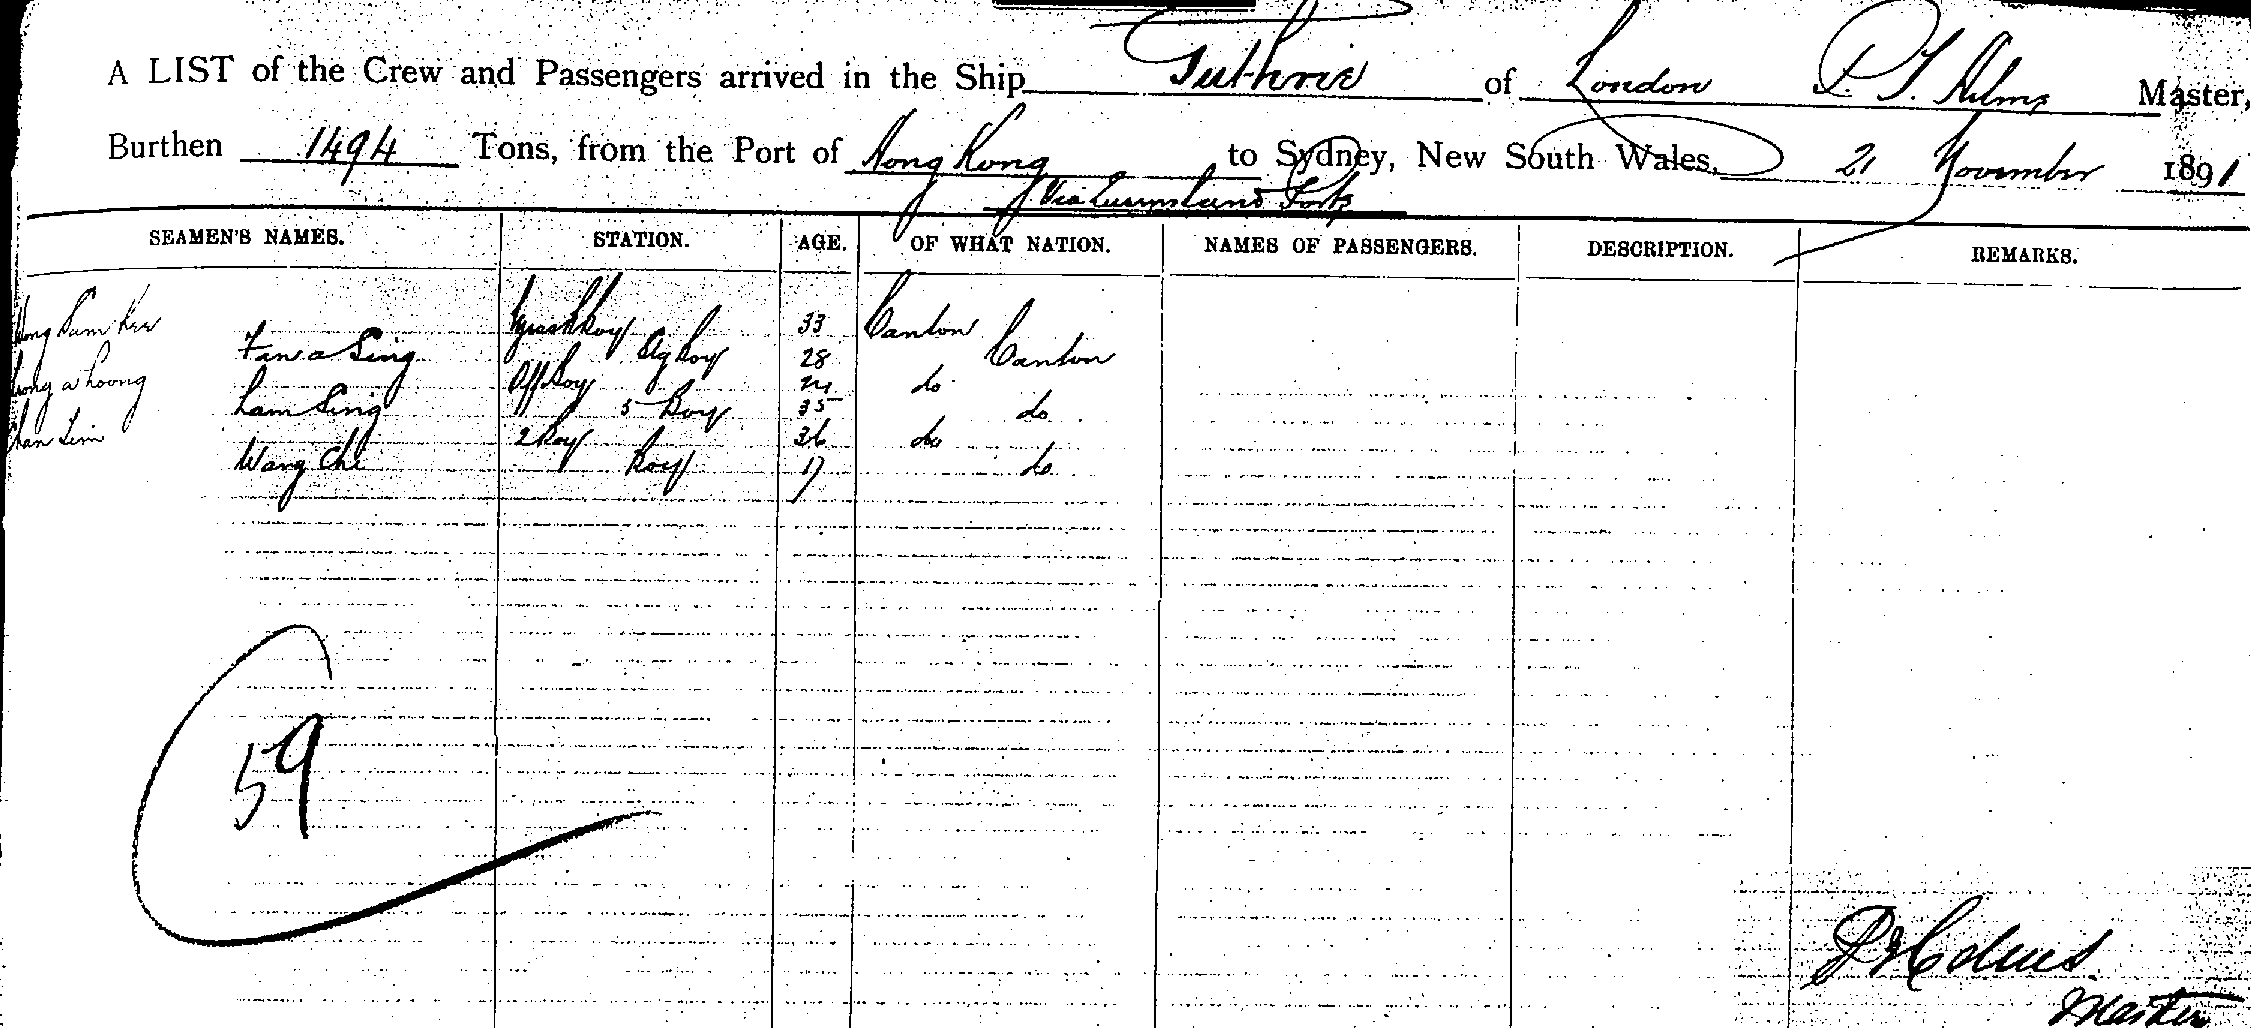 A LIST of the Crew and Passengers arrived in the Ship Guthrie of London P. T. Helms Master,
Burthen 1494 Tons, from the Port of Hong Kong to Sydney, New South Wales, 21 November 1891
Via Queensland Ports
SEAMEN'S NAMES. STATION. AGE. OF WHAT NATION. NAMES OF PASSENGERS. DESCRIPTION. REMARKS.
33 Canton
Sing Boy 28 Canton
a Boy do
Lam Sing 5 Boy 35 do
2 Boy 36 do
Wang Chi Boy 17 do
59
Master